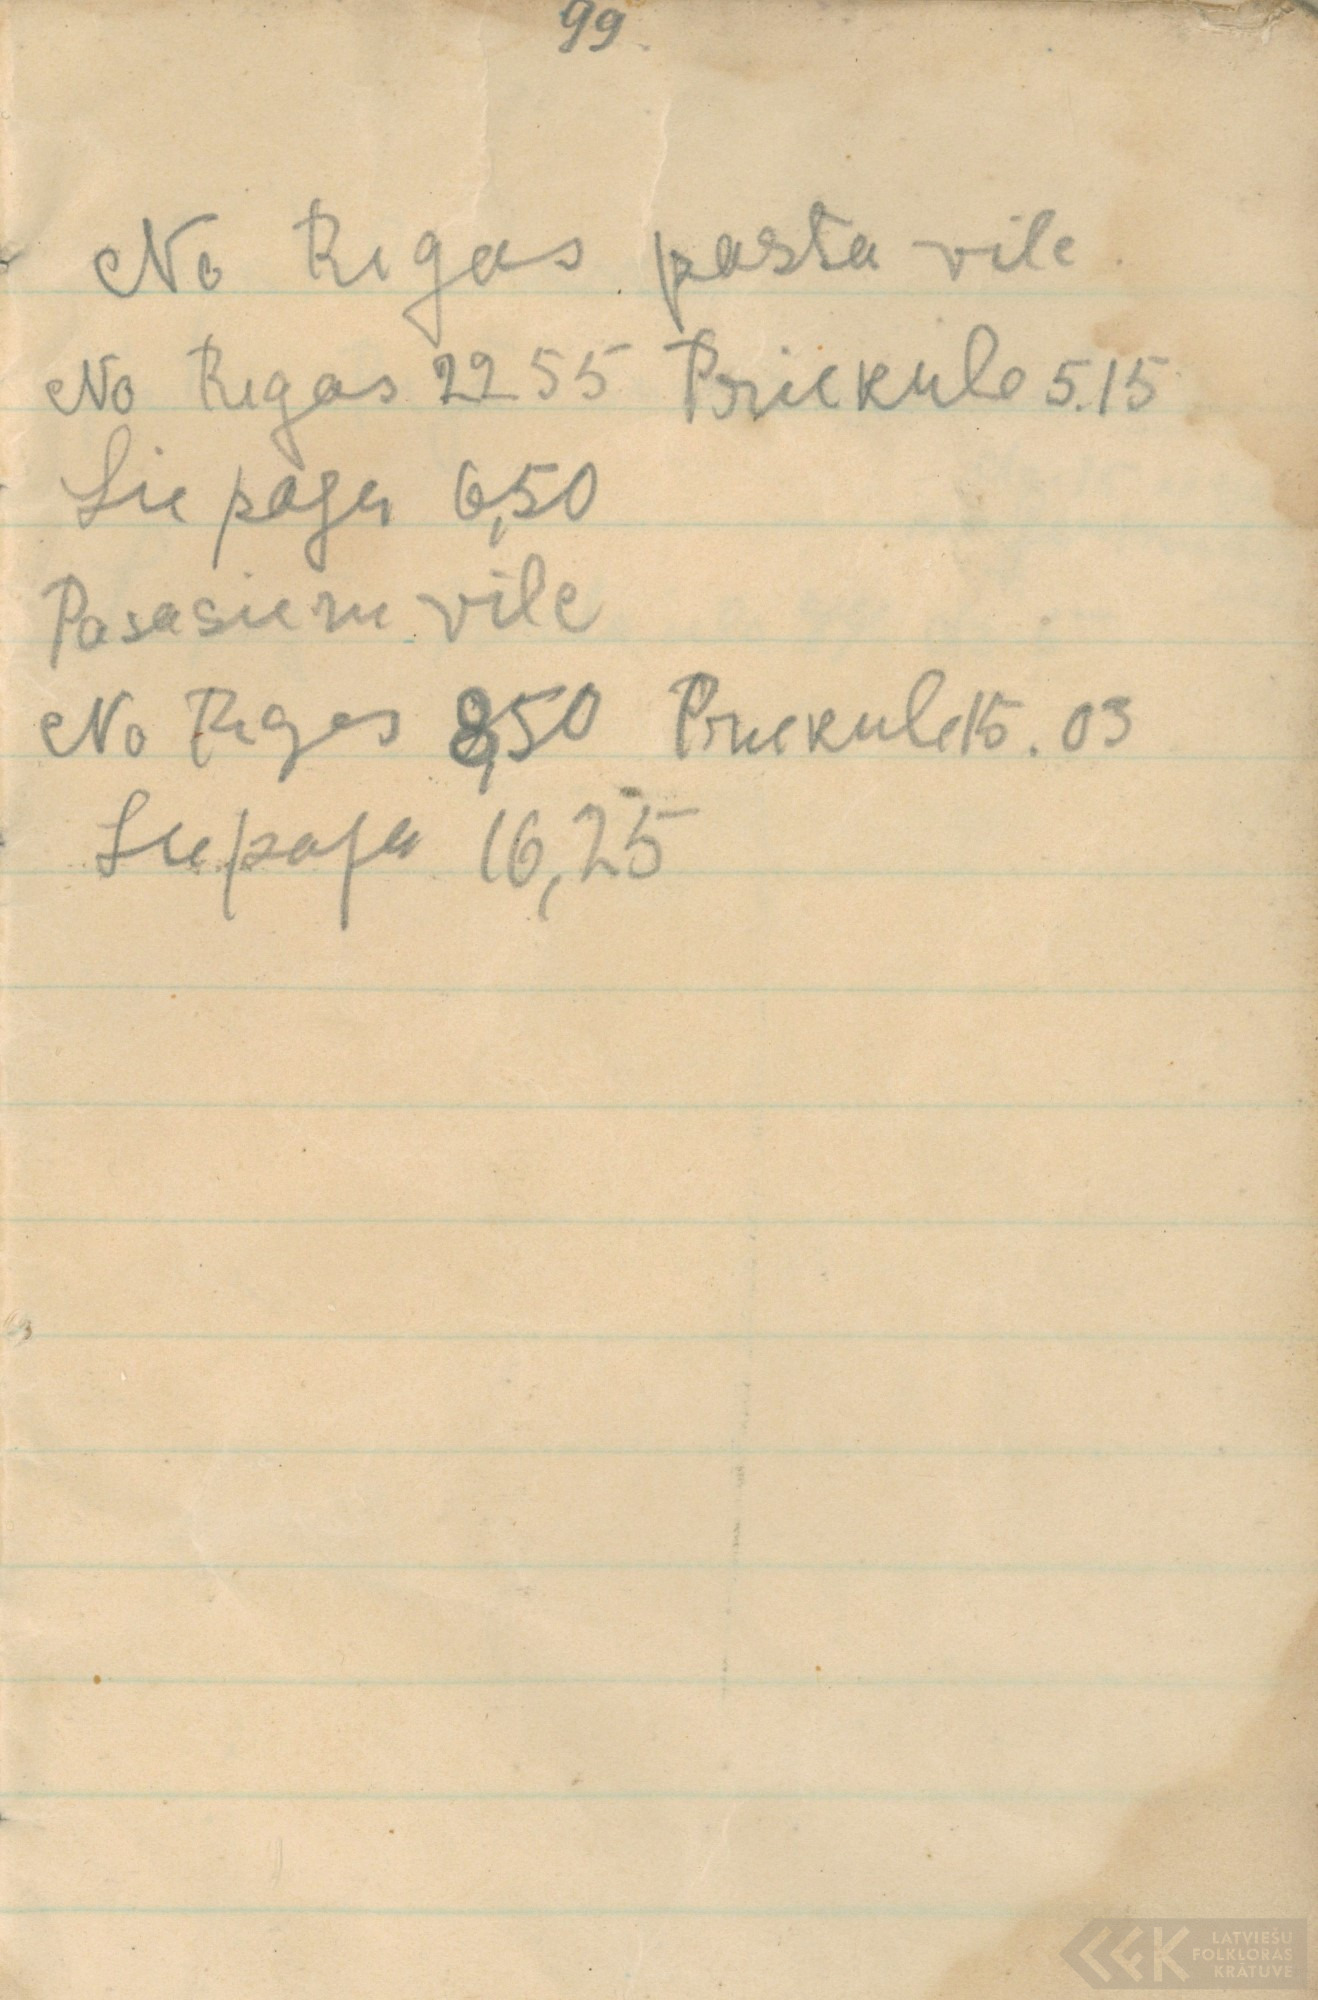 99.
No Rigas pasta vile
No Rigas 22 55 Priekule 5.15
Liepaja 6,50
Pasasieru vile
No Rigas 8,50 Priekule 15.03
Liepaja 16,25
LATVIEŠU
FOLKLORAS
KRĀTUVE